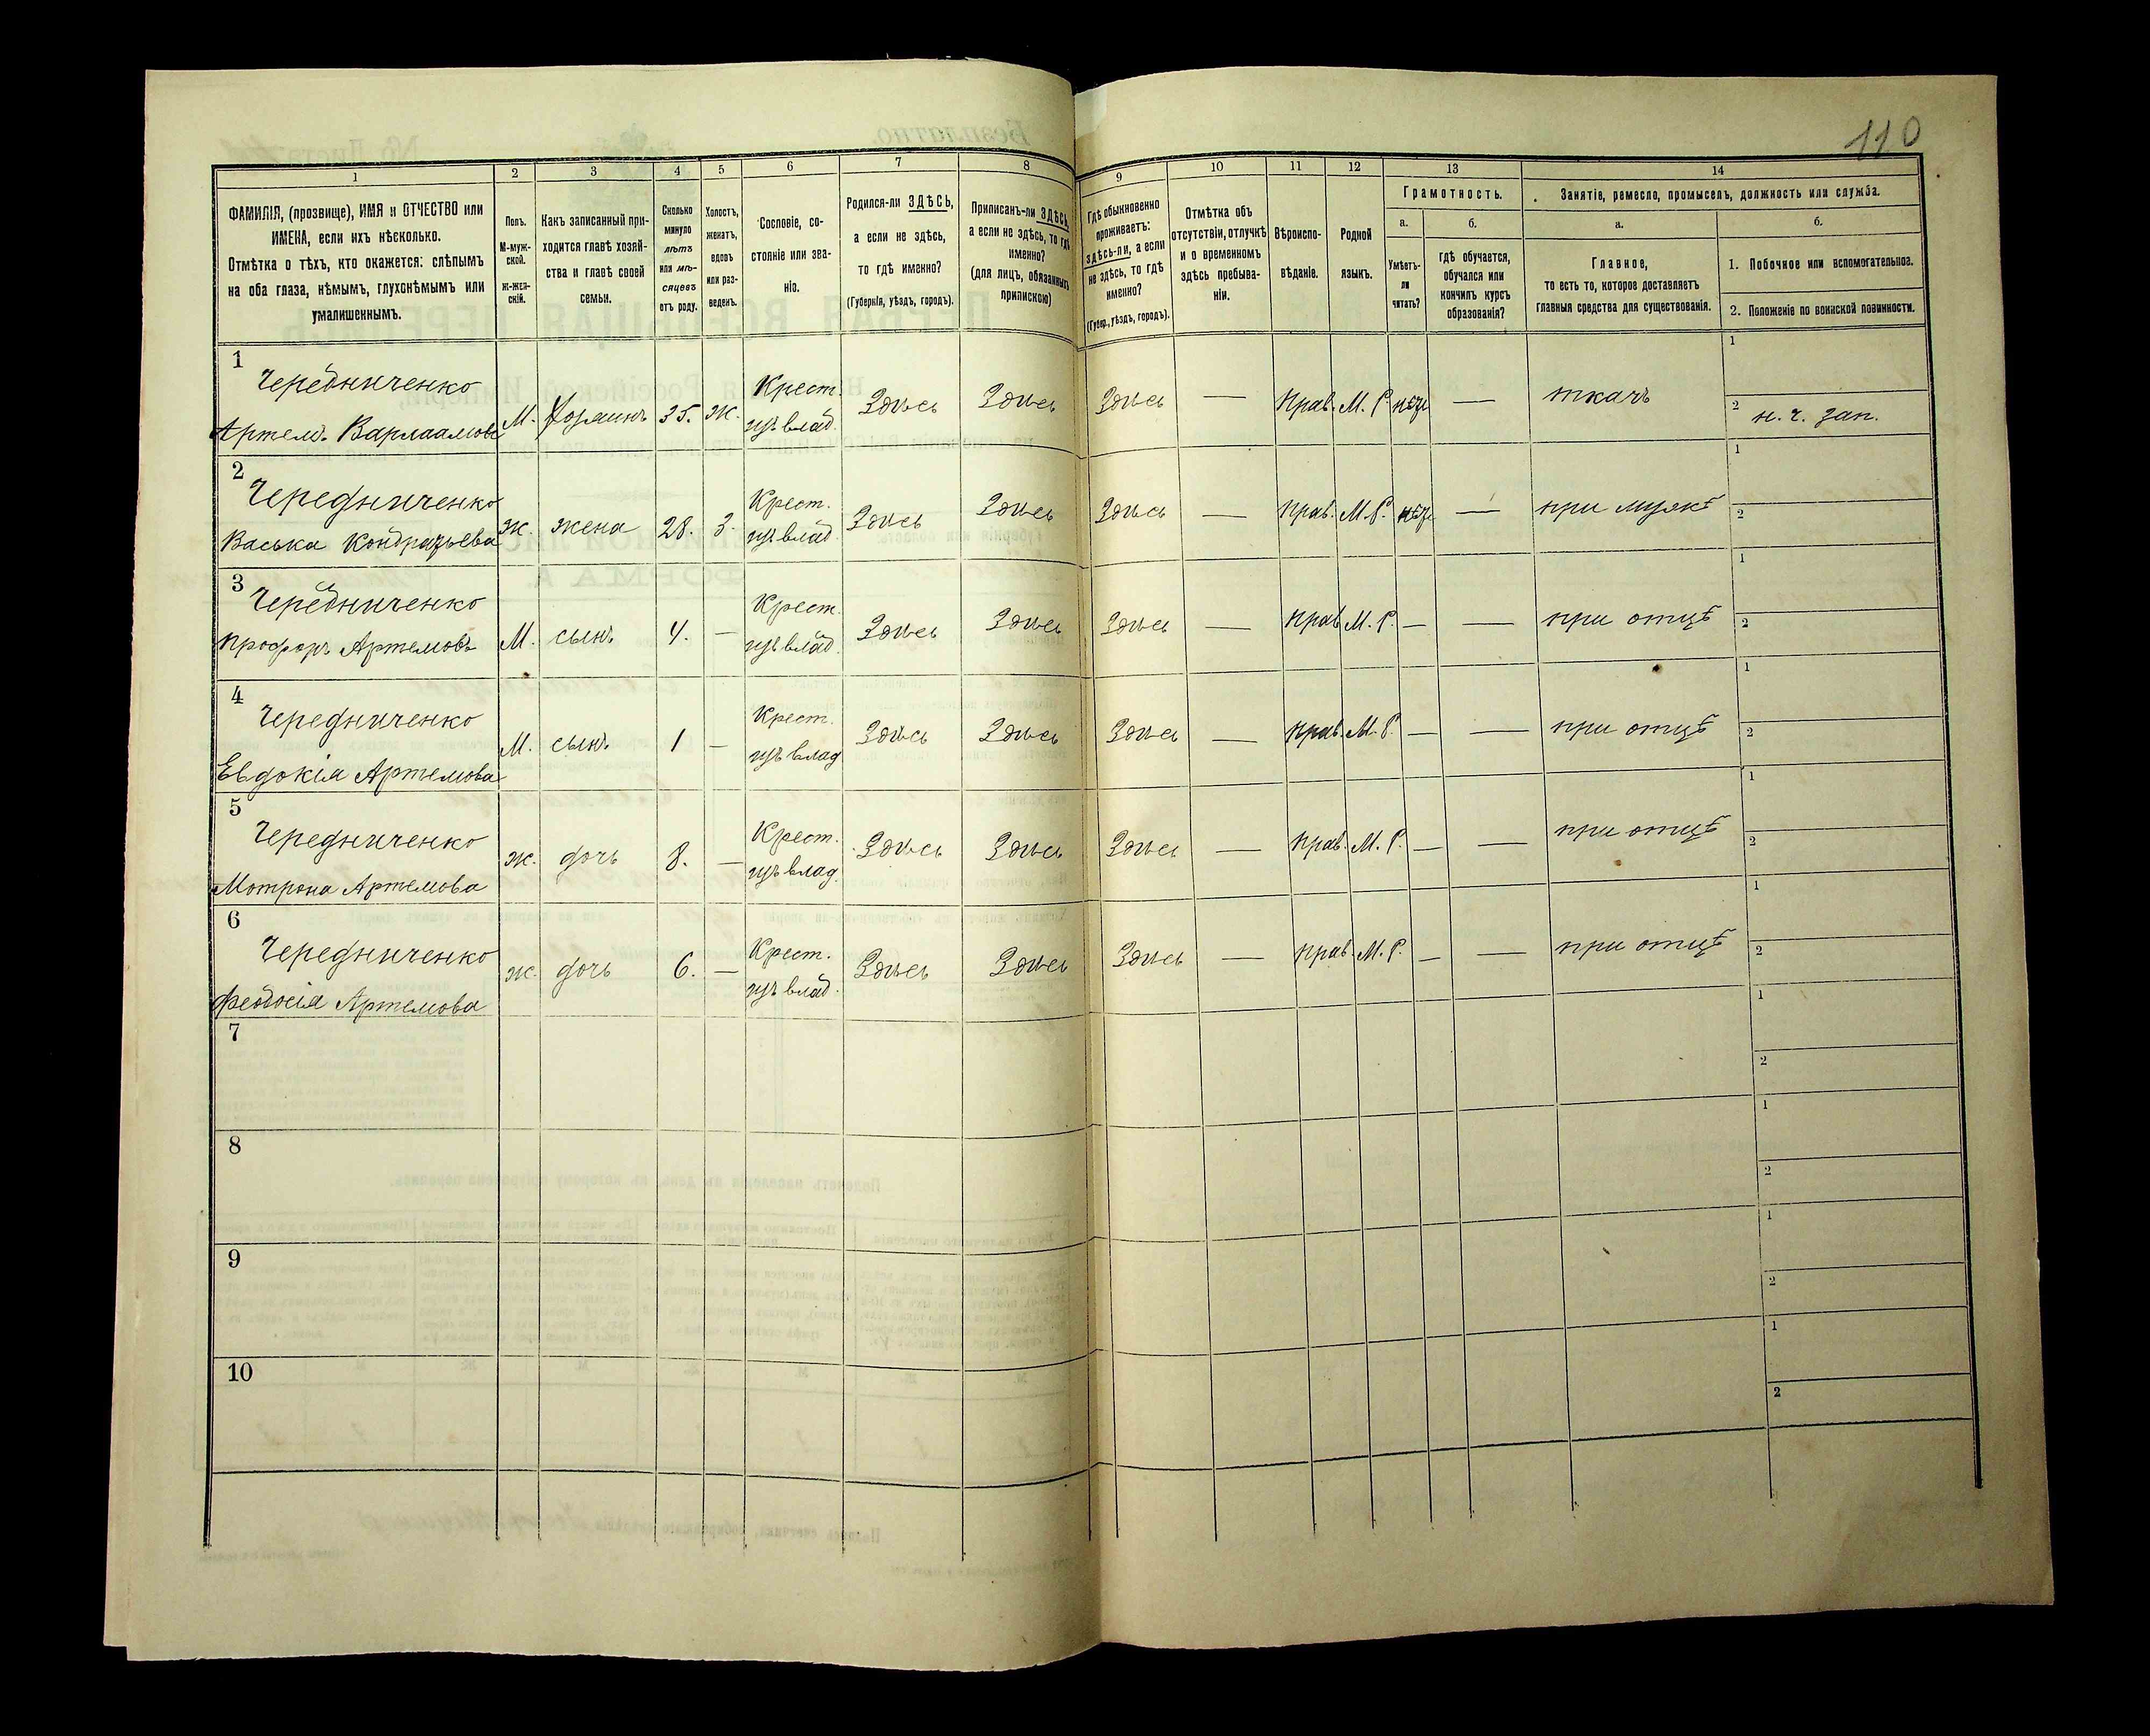 110
1
2
3
4
5
6
7
8
9
10
11
12
13
14
ФАМИЛІЯ, (прозвище), ИМЯ и ОТЧЕСТВО или
ИМЕНА, если ихъ нѣсколько.
Отмѣтка о тѣхъ, кто окажется: слѣпымъ
на оба глаза, нѣмымъ, глухонѣмымъ или
умалишеннымъ.
Полъ.
М-муж-
ской.
Ж-жен-
скій.
Какъ записанный при-
ходится главѣ хозяй-
ства и главѣ своей
семьи.
Сколько
минуло
лѣтъ
или мѣ-
сяцевъ
отъ роду.
Холостъ,
женатъ,
вдовъ
или раз-
веденъ.
Сословіе, со-
стояніе или зва-
ніе.
Родился-ли ЗДѢСЬ,
а если не здѣсь,
то гдѣ именно?
(Губернія, уѣздъ, городъ).
Приписанъ-ли ЗДѢСЬ,
а если не здѣсь, то гдѣ
именно?
(для лицъ, обязанныхъ
припискою)
Гдѣ обыкновенно
проживаетъ:
здѣсь-ли, а если
не здѣсь, то гдѣ
именно?
(Губер., уѣздъ, городъ).
Отмѣтка объ
отсутствіи, отлучкѣ
и о временномъ
здѣсь пребыва-
ніи.
Вѣроиспо-
вѣданіе.
Родной
языкъ.
Грамотность.
а.
Умѣетъ-
ли
читать?
б.
гдѣ обучается,
обучался или
кончилъ курсъ
образованія?
Занятіе, ремесло, промыселъ, должность или служба.
а.
Главное,
то есть то, которое доставляетъ
главныя средства для существованія.
б.
1. Побочное или вспомогательное.
2. Положеніе по воинской повинности.
1
Чередниченко
Артемъ Варлаамовъ
М. Хозяинъ 35. Ж. Крест.
изъ влад. Здѣсь Здѣсь Здѣсь — Прав. М. Р. — ткачъ
1
2 н. ч. зап.
2
Чередниченко
Васька Кондратьева
Ж. жена 28. З. Крест.
изъ влад. Здѣсь Здѣсь Здѣсь — Прав. М. Р. — при мужѣ
1
2
3
Чередниченко
Артемовъ
М. сынъ 4. — Крест.
изъ влад. Здѣсь Здѣсь Здѣсь — Прав. М. Р. — — при отцѣ
1
2
4
Чередниченко
Евдокія Артемова
М. сынъ 1 — Крест.
изъ влад Здѣсь Здѣсь Здѣсь — Прав. М. Р. — — при отцѣ
1
2
5
Чередниченко
Мотрона Артемова
Ж. дочь 8. — Крест.
изъ влад. Здѣсь Здѣсь Здѣсь — Прав. М. Р. — — при отцѣ
1
2
6
Чередниченко
Феодосія Артемова
Ж. дочь 6. — Крест.
изъ влад. Здѣсь Здѣсь Здѣсь — Прав. М. Р. — — при отцѣ
1
2
7
1
2
8
1
2
9
1
2
10
1
2